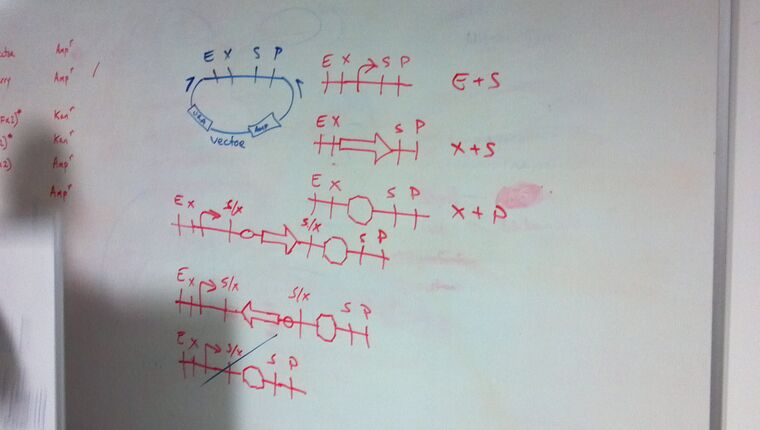 Amp^r
Amp^r /
Ken^r
Ken^r
Amp^r
Amp^r
E X S P
URA Amp
vector
E X S P E + S
E X S P X + S
E X S P X + P
E X S/X S/X S P
E X S/X S/X S P
E X S/X S P